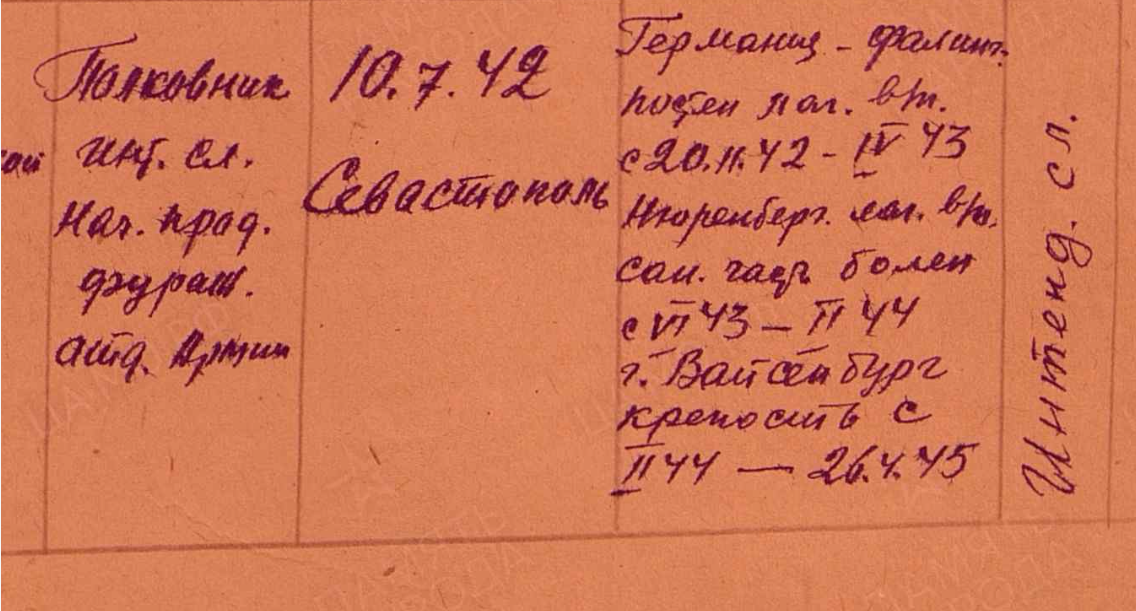 Полковник
инт. сл.
Нач. прод.
фураж.
отд. Армии
10.7.42
Севастополь
Германия - фалинг.
постен лаг. в/п.
с 20.11.42 - IV 43
Нюренберг. лаг. в/п.
сан. часть болен
с VI 43 — II 44
г. Вайсенбург
крепость с
II 44 — 26.4.45
Интенд. сл.